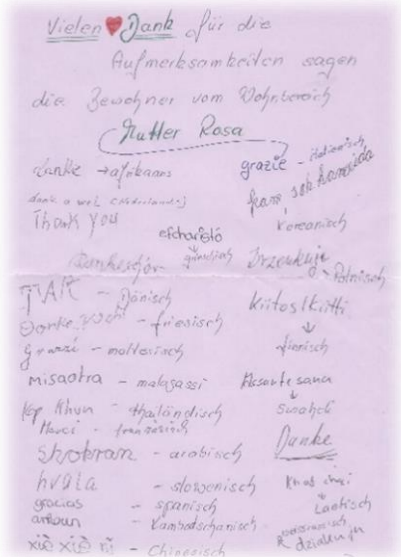 Vielen ♥ Dank für die
Aufmerksamkeiten sagen
die Bewohner vom Wohnbereich
Mutter Rosa
danke → afrikaans
grazie - italienisch
dank u wel (Niederländ.)
Thank you
koreanisch
efcharistó
↓
griechisch
Dankeschön
Dziękuję - Polnisch
TAK - Dänisch
Kiitos/Kiitti
↓
finnisch
- friesisch
Grazzi - maltesisch
misaotra - malagassi
Assante sana
↓
Swaheli
Kop Khun - thailändisch
Merci - französisch
Danke
Shokran - arabisch
hvala - slowenisch
Laotisch
gracias - spanisch
arkoun - Kambodschanisch
xiè xiè ni - Chinesisch